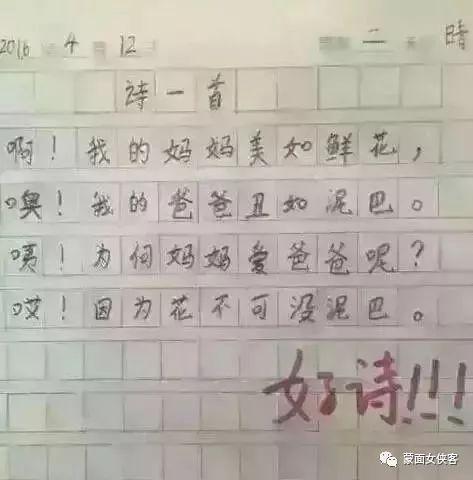 2016 4 12 二 晴
诗一首
啊！我的妈妈美如鲜花，
噢！我的爸爸丑如泥巴。
咦！为何妈妈爱爸爸呢？
哎！因为花不可没泥巴。
好诗!!!
蒙面女侠客